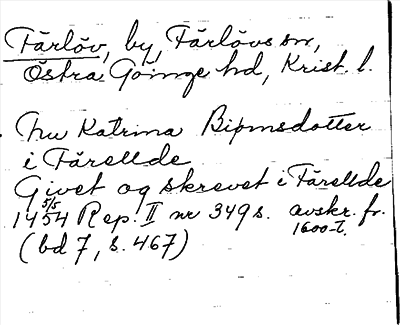 Färlöv, by, Färlövs sn,
Östra Göinge hd, Krist. l.
hu Katrina Bipmsdotter
i Färellde
Givet og skrevet i Färellde
5/5 1454 Rep. II nr 349 s. avskr. fr.
1600-t.
(bd 7, s. 467)